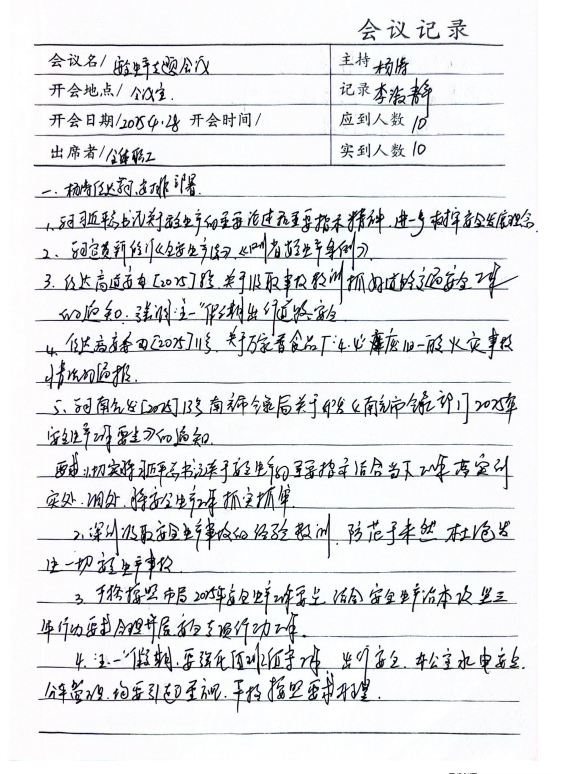 会议记录
会议名/安全生产专题会议 主持 杨涛
开会地点/会议室 记录 李淑静
开会日期/2025.4.28 开会时间/ 应到人数 10
出席者/全体职工 实到人数 10
一、杨涛传达学习,安排部署
1、学习习近平总书记关于安全生产的重要论述和重要指示精神,进一步树牢安全发展理念
2、学习宣贯新修订《安全生产法》、《四川省安全生产条例》
3、传达高道安办[2025] 号 关于汲取事故教训抓好道路交通安全工作
的通知,强调五一假期出行道路安全
4、传达高安委办[2025]11号,关于万家香食品厂"4.4"库房旧一般火灾事故
情况的通报
5、学习南 发[2025]13号南充市 局关于印发《南充市 部门2025年
安全生产工作要点》的通知
要求1、切实将习近平总书记关于安全生产的重要指示结合当下工作落实到
实处、细处,将安全生产工作抓实抓牢
2、深刻汲取安全生产事故的经验教训,防范于未然 杜绝发
生一切安全生产事故
3、严格按照市局2025年安全生产工作要点,结合安全生产治本攻坚三
年行动要求全面开展安全专项行动工作
4、五一假期,要强化值班值守工作,出行安全,办公室水电安全
公车管理,均要引起重视,严格按照要求 .